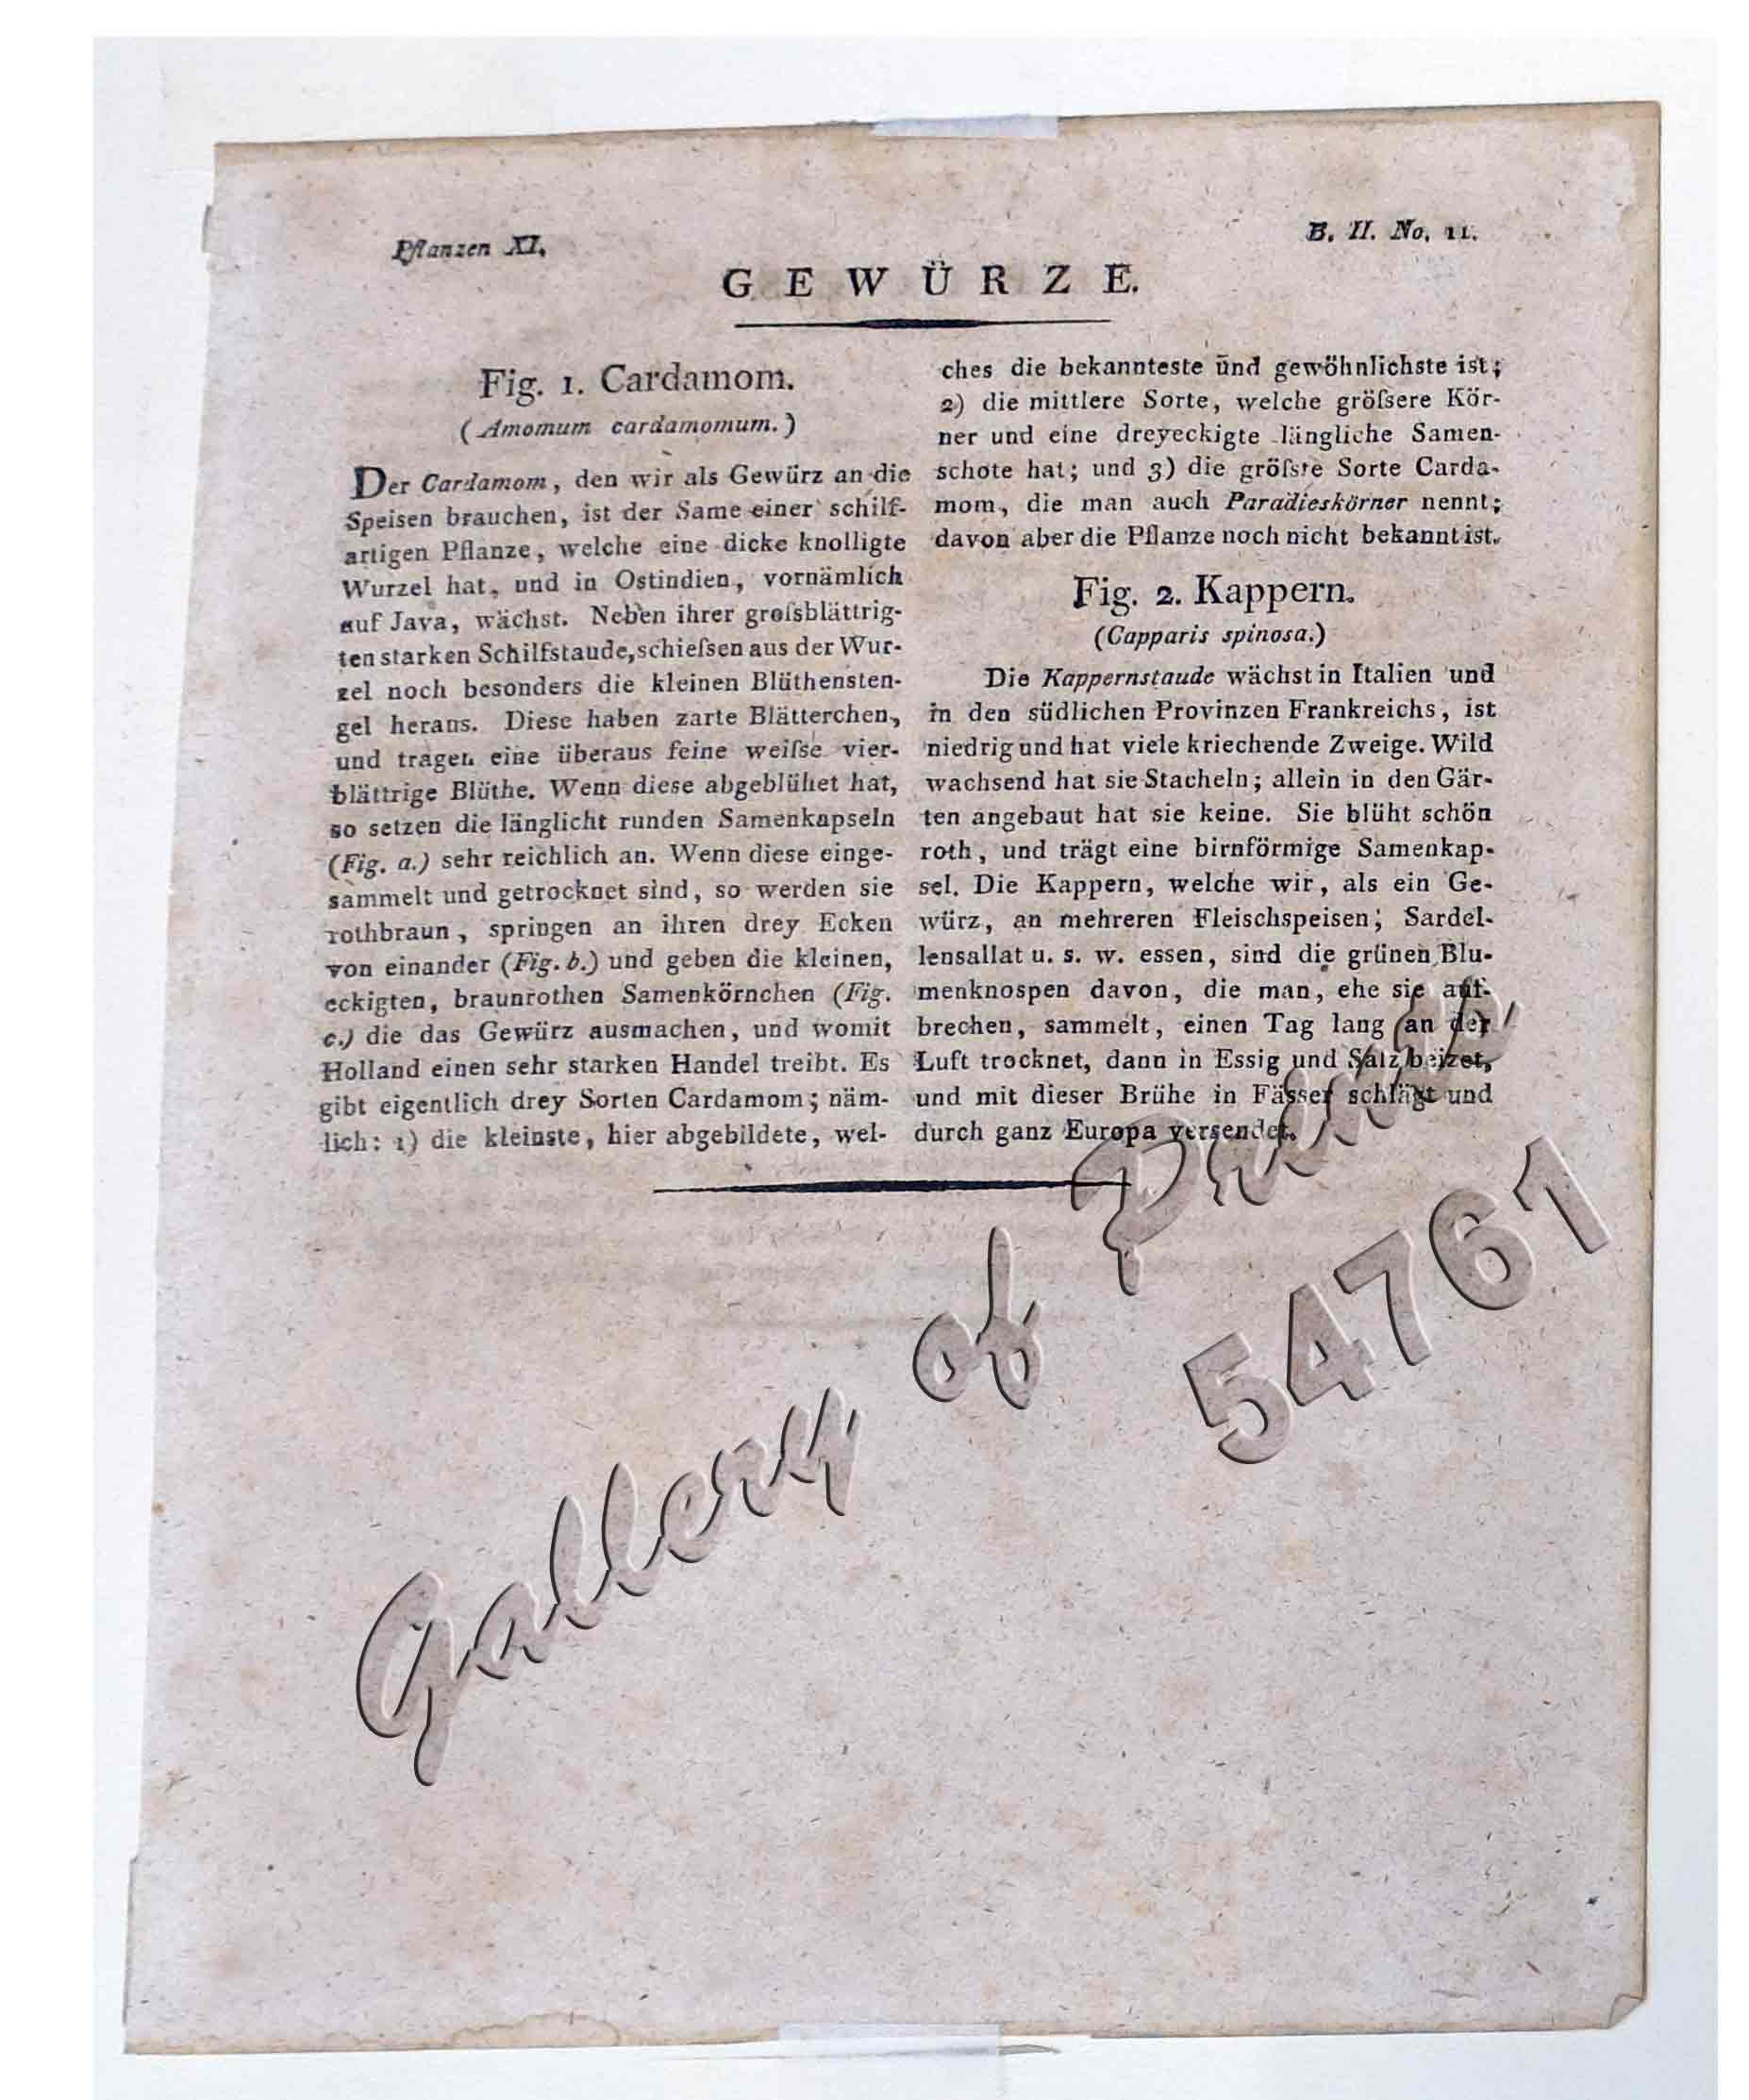 Pflanzen XI.
B. II. No. 11.
GEWÜRZE.
Fig. 1. Cardamom.
(Amomum cardamomum.)
Der Cardamom, den wir als Gewürz an die
Speisen brauchen, ist der Same einer schilf-
artigen Pflanze, welche eine dicke knolligte
Wurzel hat, und in Ostindien, vornämlich
auf Java, wächst. Neben ihrer groſsblättrig-
ten starken Schilfstaude, schieſsen aus der Wur-
zel noch besonders die kleinen Blüthensten-
gel heraus. Diese haben zarte Blätterchen,
und tragen eine überaus feine weiſse vier-
blättrige Blüthe. Wenn diese abgeblühet hat,
so setzen die länglicht runden Samenkapseln
(Fig. a.) sehr reichlich an. Wenn diese einge-
sammelt und getrocknet sind, so werden sie
rothbraun, springen an ihren drey Ecken
von einander (Fig. b.) und geben die kleinen,
eckigten, braunrothen Samenkörnchen (Fig.
c.) die das Gewürz ausmachen, und womit
Holland einen sehr starken Handel treibt. Es
gibt eigentlich drey Sorten Cardamom; näm-
lich: 1) die kleinste, hier abgebildete, wel-
ches die bekannteste und gewöhnlichste ist;
2) die mittlere Sorte, welche gröſsere Kör-
ner und eine dreyeckigte längliche Samen-
schote hat; und 3) die gröſste Sorte Carda-
mom, die man auch Paradieskörner nennt;
davon aber die Pflanze noch nicht bekannt ist.
Fig. 2. Kappern.
(Capparis spinosa.)
Die Kappernstaude wächst in Italien und
in den südlichen Provinzen Frankreichs, ist
niedrig und hat viele kriechende Zweige. Wild
wachsend hat sie Stacheln; allein in den Gär-
ten angebaut hat sie keine. Sie blüht schön
roth, und trägt eine birnförmige Samenkap-
sel. Die Kappern, welche wir, als ein Ge-
würz, an mehreren Fleischspeisen; Sardel-
lensallat u. s. w. essen, sind die grünen Blu-
menknospen davon, die man, ehe sie auf-
brechen, sammelt, einen Tag lang an der
Luft trocknet, dann in Essig und Salz beizet,
und mit dieser Brühe in Fässer schlägt und
durch ganz Europa versendet.
Gallery of Prints
54761